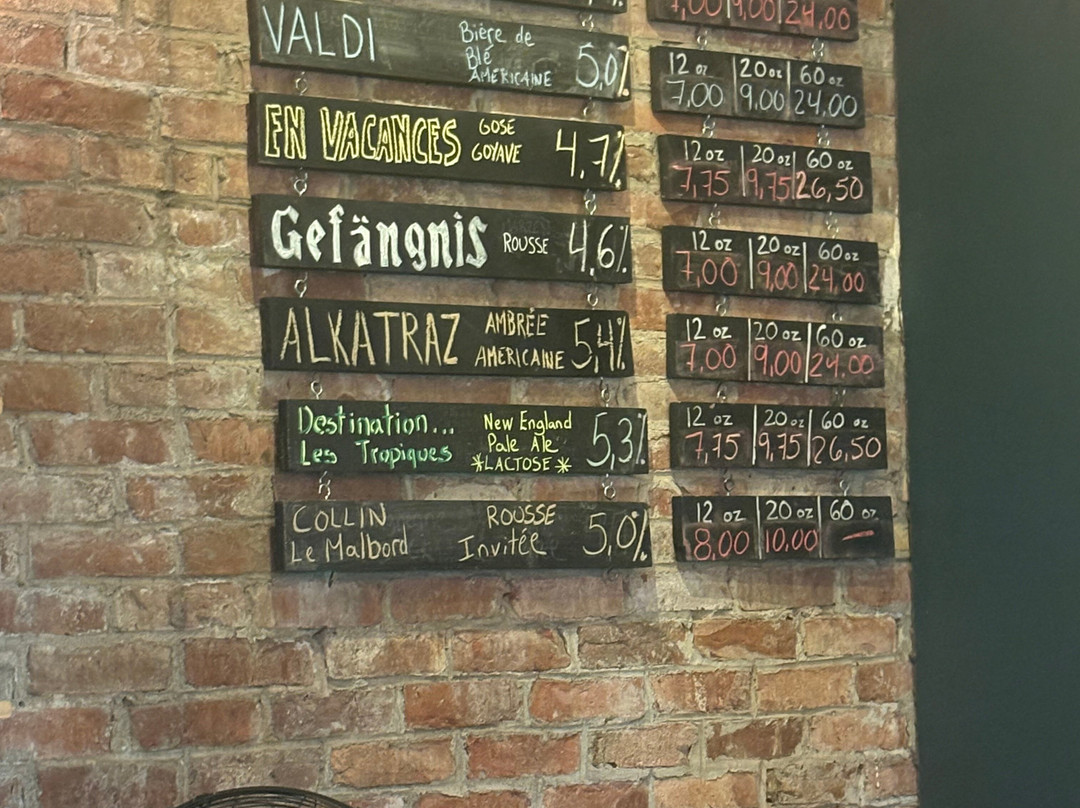 7,00 9,00 24.00
VALDI
Bière de
Blé
AMÉRICAINE
5,0%
12 oz 20oz 60 oz
7,00 9,00 24,00
EN VACANCES
GOSE
GOYAVE
4,7%
12 oz 20 oz 60 oz
7,75 9,75 26,50
Gefängnis ROUSSE 4,6%
12 oz 20 oz 60 oz
7,00 9,00 24,00
ALKATRAZ
AMBRÉE
AMÉRICAINE
5,4%
12 oz 20 oz 60 oz
7,00 9,00 24,00
Destination...
Les Tropiques
New England
Pale Ale
*LACTOSE*
5,3%
12 oz 20 oz 60 oz
7,75 9,75 26,50
COLLIN
Le Malbord
ROUSSE
Invitée
5,0%
12 oz 20 oz 60 oz
8,00 10,00 —